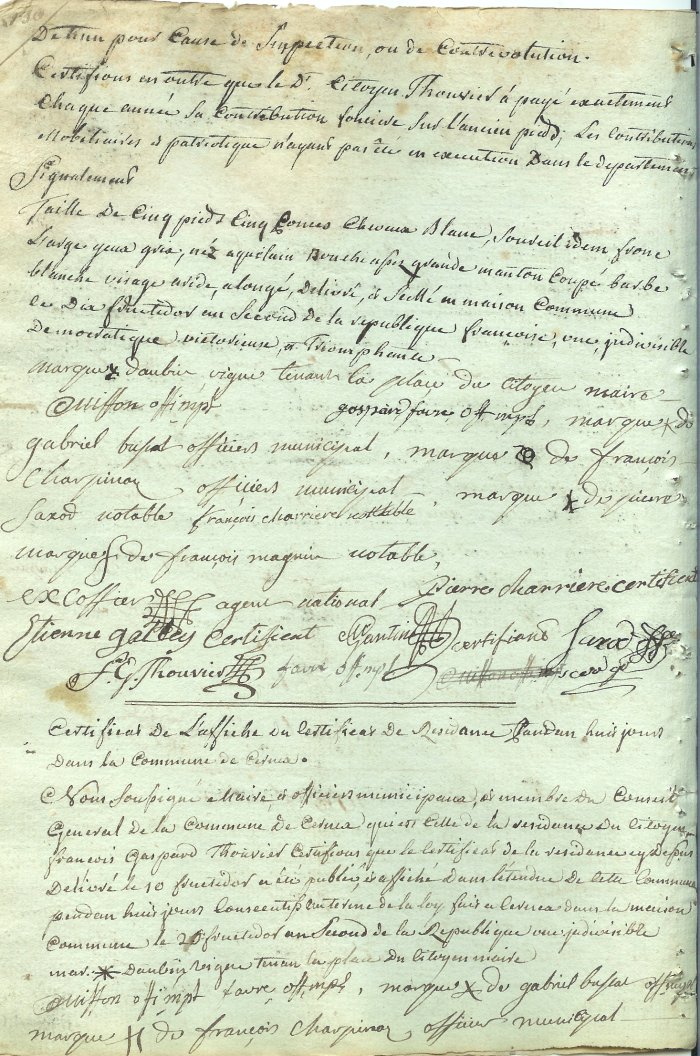 130
Detenu pour Cause de Suspection, ou de Contrevolution.
Certifions en outre que le Dt. Citoyen Thouvier à payé exactement
Chaque année Sa Contribution fonciere Sur L'ancien pied, Les Contributions
Mobiliaires et patriotique n'ayant pas été en execution Dans le departement
Signalement
Taille De Cinq pieds Cinq pouces Chevaux Blanc, Sourcil idem fronc
Large yeux gris, néz aquilain Bouche assez grande manton Coupé barbe
blanche visage aride, alongé, Delivré, et Scellé en maison Commune
le Dix fructidor an Second de la republique françoise, une, indivisible
Democratique, victorieuse, et Triomphante
marque x d'aubin vigne tenant la place du citoyen maire
Miffon off. mpl gaspard favre off. mpl, marque x de
gabriel buffat officiers municipal, marque de françois
Charpinaz officiers municipal, marque x de pierre
Saxod notable françois charriere notable
marque de françois magnin notable,
Excoffier agent national pierre charriere certifient
Etienne galley certifient Gantin certifians Saxod
F. G. Thouvier favre off. mpl
Certificat de L'affiche du Certificat De Residance Pandan huit jours
Dans la Commune de Cernex.
Nous Soussigné Maire, et officiers municipaux, et membre du Conseil
General de la Commune De Cernex qui est Celle de la residance Du Citoyen
françois Gaspard Thouvier Certifions que le Certificat de la residance cy Dessus
Delivré le 10 fructidor a été publié, et affiche Dans l'étendue De Cette Commune
pendan huit jours Consecutif au terme de la loy fait a Cernex dans la maison
Commune le 20 fructidor an Second de la Republique une indivisible
mar. x D'aubin vigne tenan la place du Citoyen maire
Miffon off. mpl favre off. mpl, marque x de gabriel buffat off. mpl
marque de françois Charpinaz officier municipal